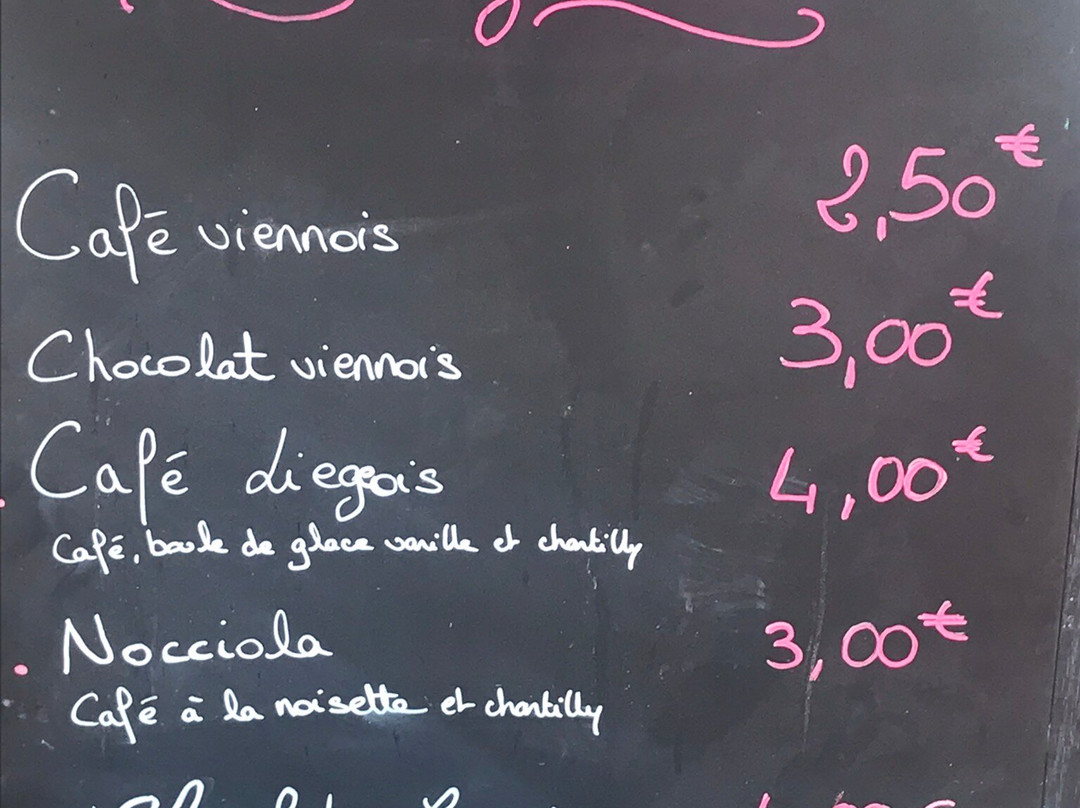 Café viennois 2,50€
Chocolat viennois 3,00€
Café liegeois 4,00€
Café, boule de glace vanille et chantilly
Nocciola 3,00€
Café à la noisette et chantilly